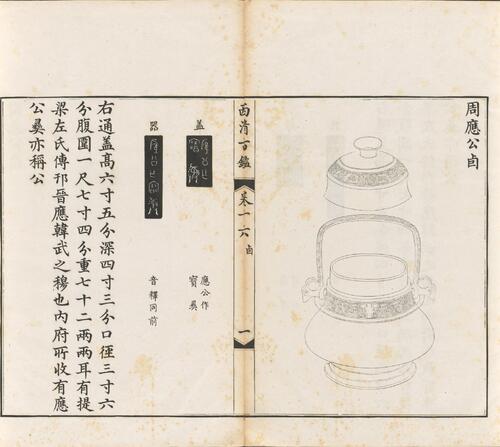 周應公卣
西清古鑑
卷一六 卣
一
蓋
應公作
寶彝
器
音釋同前
右通蓋高六寸五分深四寸三分口徑三寸六
分腹圍一尺七寸四分重七十二兩兩耳有提
梁左氏傳邘晉應韓武之穆也內府所收有應
公彝亦稱公